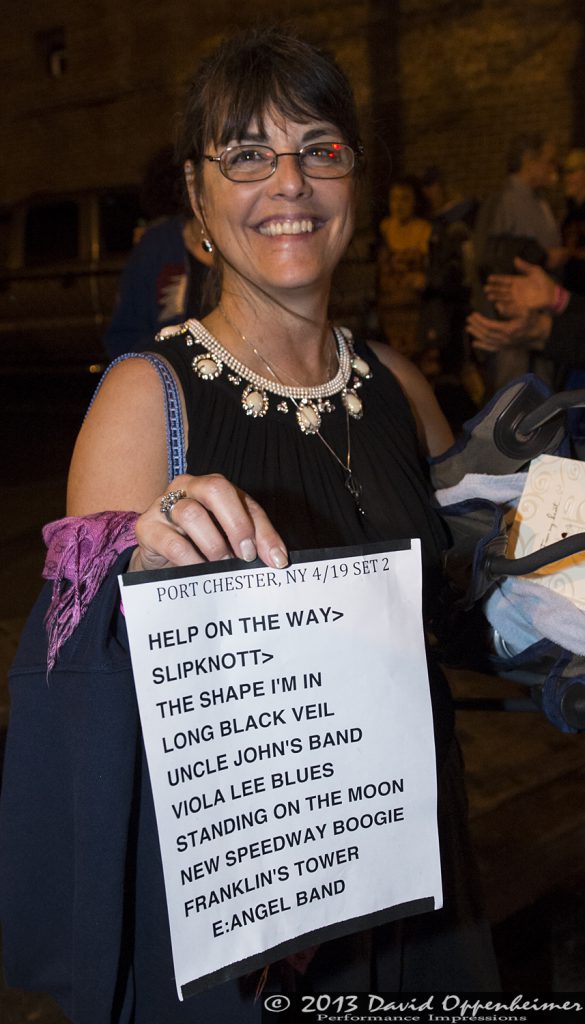 PORT CHESTER, NY 4/19 SET 2
HELP ON THE WAY>
SLIPKNOTT>
THE SHAPE I'M IN
LONG BLACK VEIL
UNCLE JOHN'S BAND
VIOLA LEE BLUES
STANDING ON THE MOON
NEW SPEEDWAY BOOGIE
FRANKLIN'S TOWER
E:ANGEL BAND
© 2013 David Oppenheimer
Performance Impressions